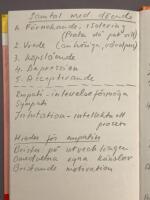 Samtal med döende
1. Förnekande-isolering
(Prata då pat vill)
2. Vrede (anhöriga, vårdpers)
3. Köpslående
4. Depression
5. Accepterande
Empati - inlevelseförmåga
Sympati
Intuition - intellektuell
process
Hinder för empatin
Brister på utvecklingen
egna känslor
Bristande motivation